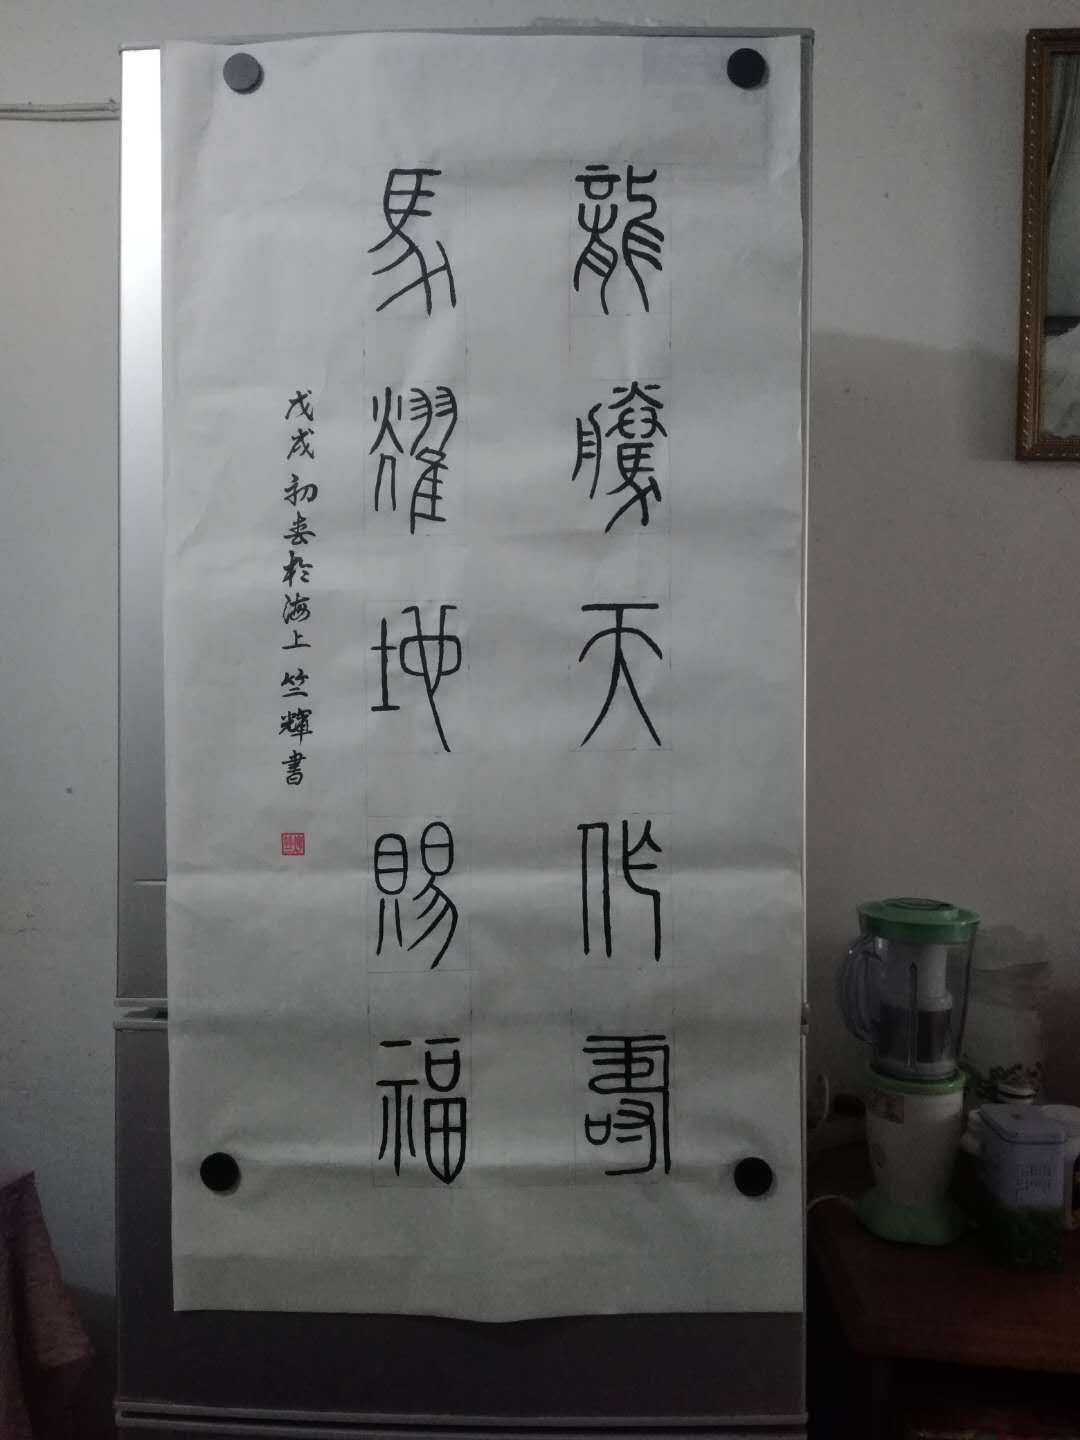 龍騰天作壽
馬耀地賜福
戊戌初春於海上竺輝書